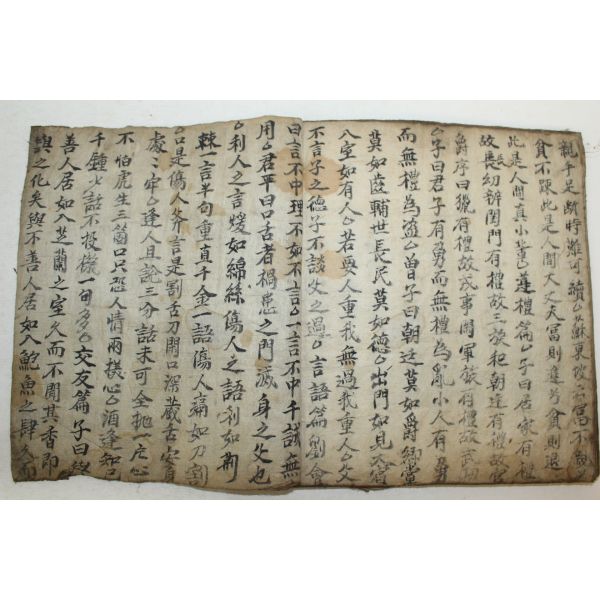 親手足断時難可續○蘇東坡云富不親
貧不踈此是人間大丈夫富則進兮貧則退
此是人間真小輩○遵禮篇○子曰居家有禮
故長幼辨閨門有禮故三族和朝廷有禮故官
爵序田獵有禮故戎事閑軍旅有禮故武功
○子曰君子有勇而無禮為亂小人有勇
而無禮為盜○曾子曰朝廷莫如爵鄉黨
莫如齒輔世長民莫如德○出門如見大賓
入室如有人○若要人重我無過我重人○父
不言子之德子不談父之過○言語篇劉會
曰言不中理不如不言○一言不中千語無
用○君平曰口舌者禍患之門滅身之斧也
○利人之言煖如綿絲傷人之語利如荊
棘一言半句重直千金一語傷人痛如刀割
○口是傷人斧言是割舌刀閉口深藏舌安身
處〻牢○逢人且說三分話未可全抛一片心
不怕虎生三箇口只恐人情兩樣心○酒逢知己
千鍾少話不投機一句多○交友篇子曰與
善人居如入芝蘭之室久而不聞其香即
與之化矣與不善人居如入鮑魚之肆久而